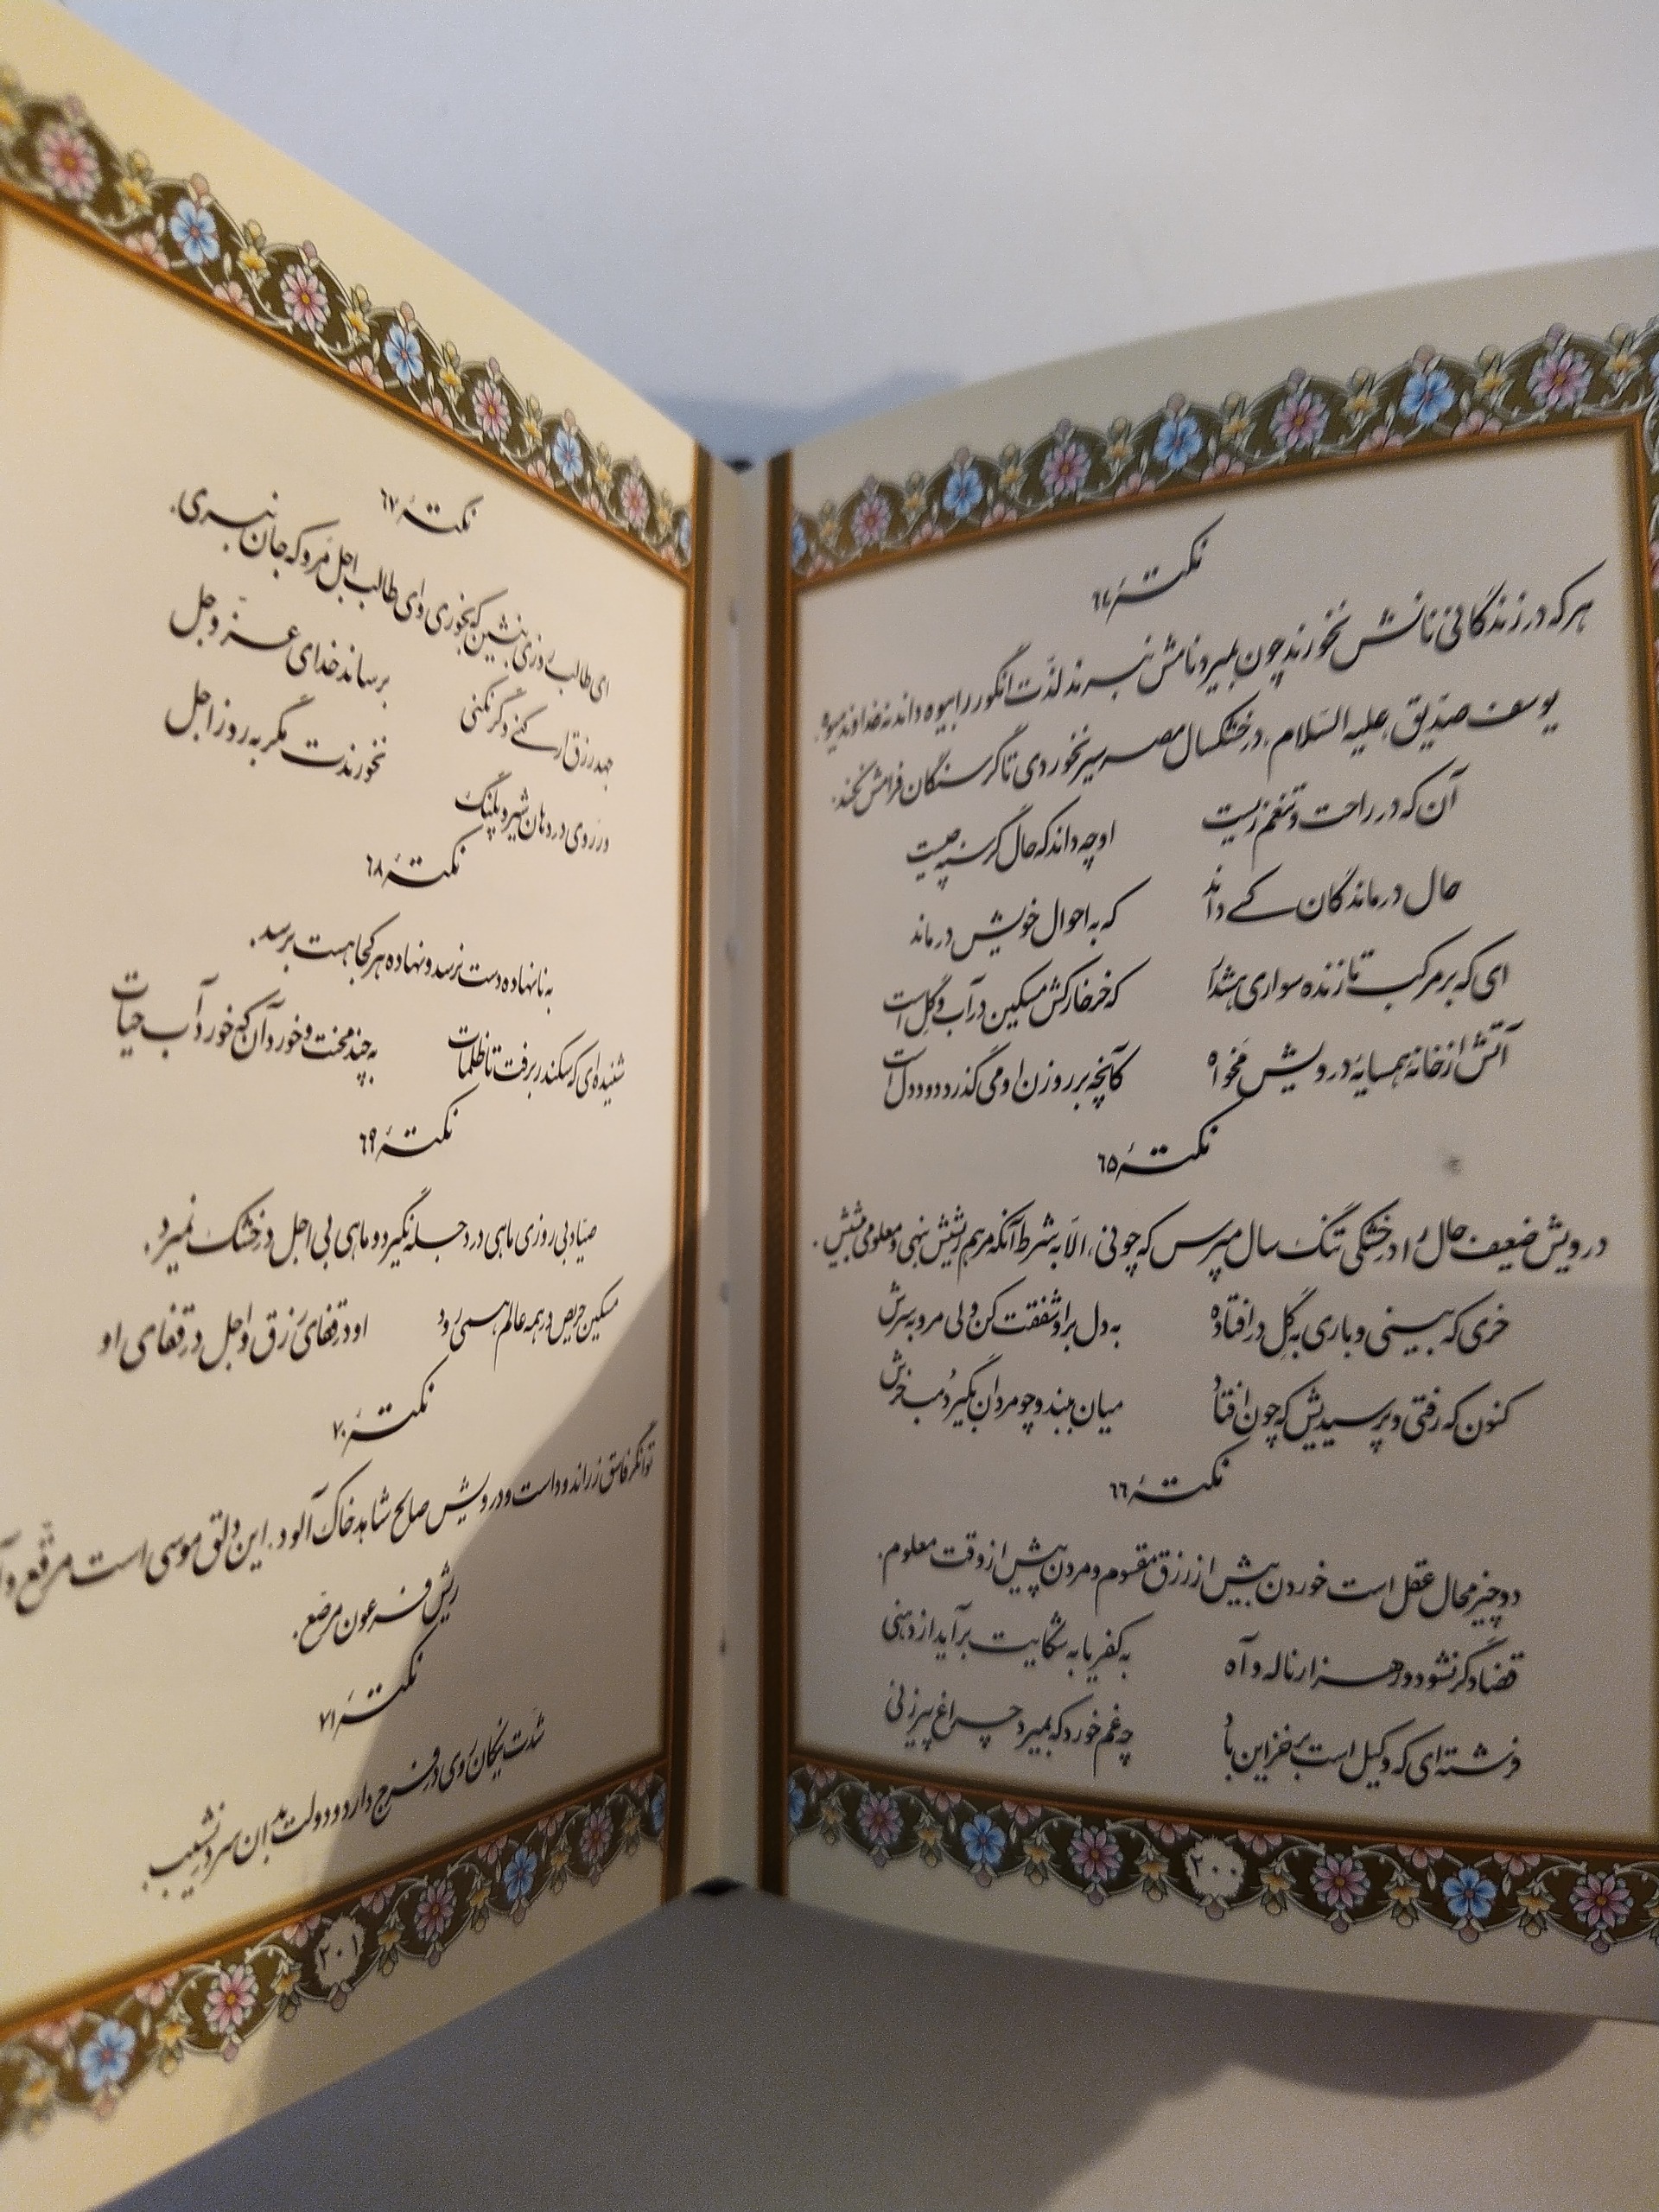 نکتهٔ ٦٤
هر که در زندگانی نانش نخورند چون بمیرد نامش نبرند لذّت انگور را بیوه داند نه خداوند میوه.
یوسف صدّیق علیه السّلام، در خشکسال مصر سیر نخوردی تا گرسنگان فرامش نکند.
آن که در راحت و تنعّم زیست	او چه داند که حال گرسنه چیست
حال درماندگان کسے داند	که به احوال خویش درماند
ای که بر مرکب تازنده سواری هشدار	که خر خارکش مسکین در آب و گِل است
آتش از خانهٔ همسایهٔ درویش مَخواه	کآنچه بر روزن او می گذرد دود دل است
نکتهٔ ٦٥
درویش ضعیف حال را در خشکی تنگ سال مپرس که چونی، الّا به شرط آنکه مرهم ریشش بنهی و معلومی پیشش.
خری که بینی و باری به گِل در افتاده	به دل بر او شفقت کن ولی مرو به سرش
کنون که رفتی و پرسیدیش که چون افتاد	میان ببند و چو مردان بگیر دُمب خرش
نکتهٔ ٦٦
دو چیز محال عقل است خوردن بیش از رزق مقسوم و مردن پیش از وقت معلوم.
قضا دگر نشود ور هزار ناله و آه	به کفر یا به شکایت برآید از دهنی
فرشته ای که وکیل است بر خزاین باد	چه غم خورد که بمیرد چراغ پیرزنی
٢٠٠
نکتهٔ ٦٧
ای طالب روزی بنشین که بخوری و ای طالب اجل مَرو که جان نبری.
جهد رزق ار کنے وگر نکنی	برساند خدای عزّ و جل
ور رَوی در دهان شیر و پلنگ	نخورندت مگر به روز اجل
نکتهٔ ٦٨
به نانهاده دست نرسد و نهاده هر کجا هست برسد.
شنیده ای که سکندر برفت تا ظلمات	به چند محنت و خورد آن که خورد آب حیات
نکتهٔ ٦٩
صیّاد بی روزی ماهی در دجله نگیرد و ماهی بی اجل در خشک نمیرد.
مسکین حریص در همه عالم همی رود	او در قفای رزق و اجل در قفای او
نکتهٔ ٧٠
توانگر فاسق زراندود است و درویش صالح شاهد خاک آلود. این دلق موسی است مرقّع و آن
ریش فرعون مرصّع.
نکتهٔ ٧١
شدّت نیکان روی در فرج دارد و دولت بدان سر در نشیب
٢٠١